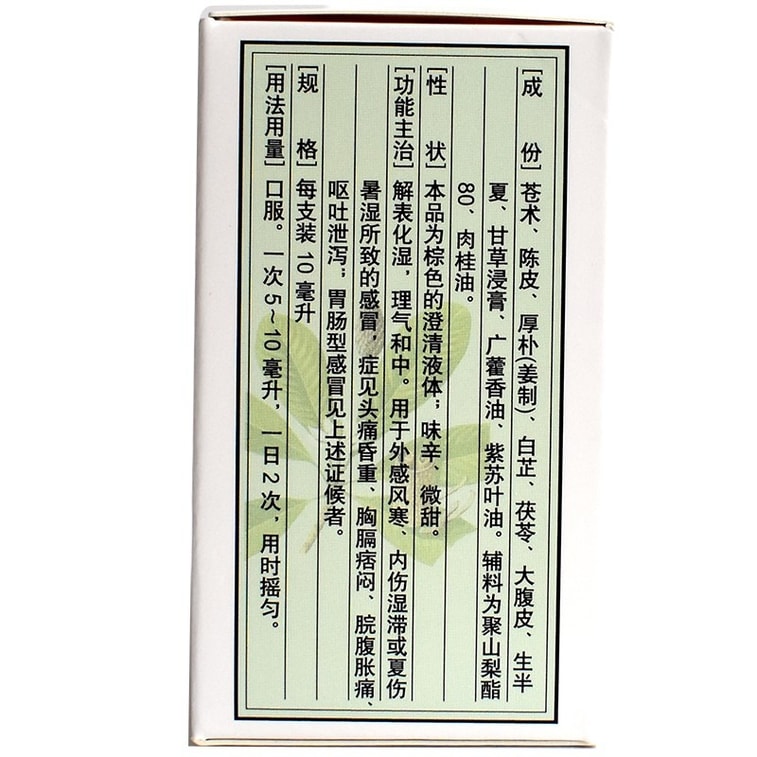 [成 份] 苍术、陈皮、厚朴(姜制)、白芷、茯苓、大腹皮、生半
夏、甘草浸膏、广藿香油、紫苏叶油。辅料为聚山梨酯
80、肉桂油。
[性 状] 本品为棕色的澄清液体；味辛、微甜。
[功能主治] 解表化湿，理气和中。用于外感风寒、内伤湿滞或夏伤
暑湿所致的感冒，症见头痛昏重、胸膈痞闷、脘腹胀痛、
呕吐泄泻；胃肠型感冒见上述证候者。
[规 格] 每支装10毫升
[用法用量] 口服。一次5~10毫升，一日2次，用时摇匀。